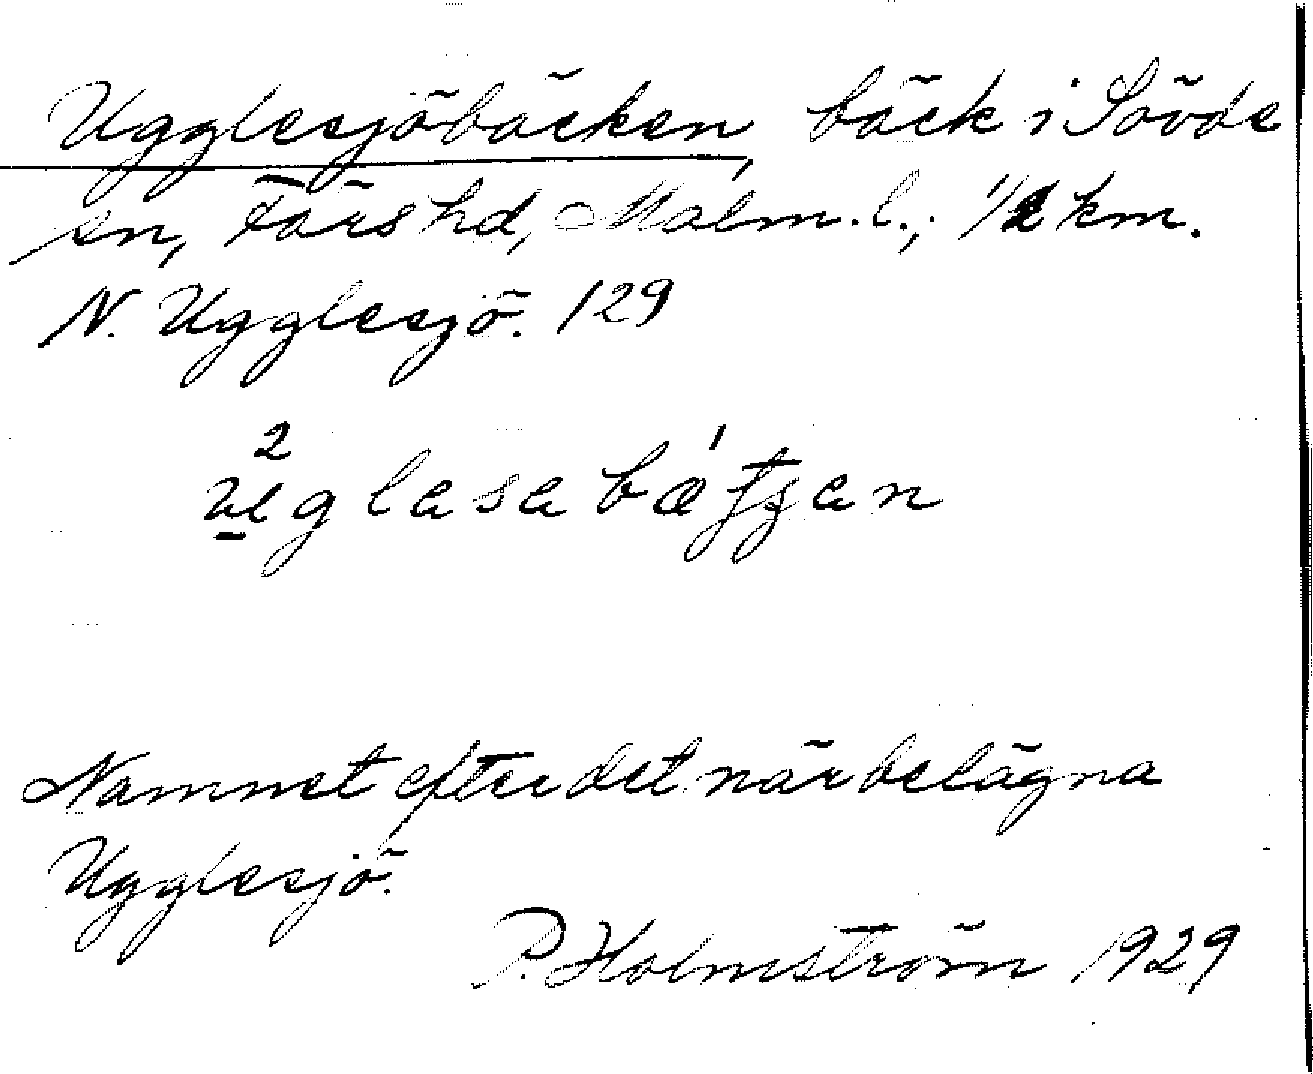 Ugglesjöbäcken, bäck i Sövde
sn, Färs hd, Malm. l., 1/2 km.
N. Ugglesjö. 129
Namnet efter det närbelägna
Ugglesjö.
P. Holmström 1929